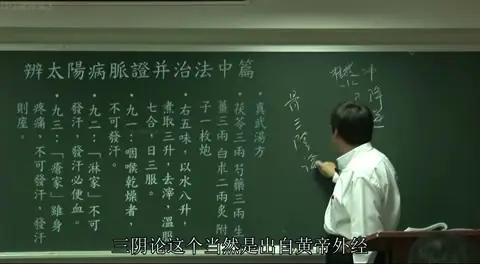 辨太陽病脈證并治法中篇
真武湯方
茯苓三兩芍藥三兩生
薑三兩白朮二兩炙附
子一枚炮
右五味，以水八升，
煮取三升，去滓，溫服
七合，日三服。
九一：咽喉乾燥者，
不可發汗。
九二：「淋家」不可
發汗，發汗必便血。
九三：「瘡家」雖身
疼痛，不可發汗，發汗
則
三陰
三阴论这个当然是出自黄帝外经